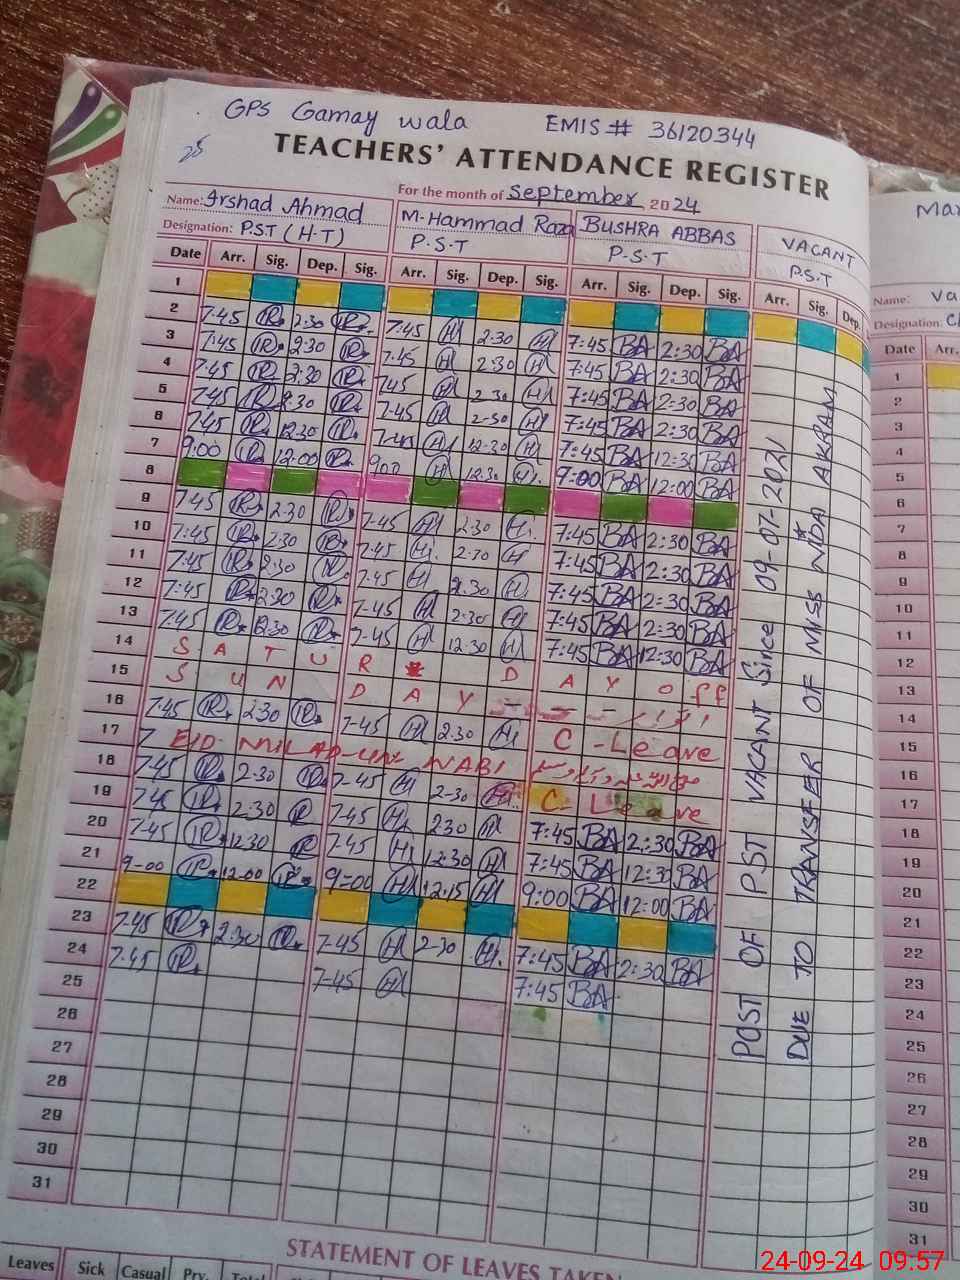 GPS Gamay wala EMIS# 36120344
28
TEACHERS' ATTENDANCE REGISTER
For the month of September 2024
Name: Irshad Ahmad M-Hammad Raza BUSHRA ABBAS VACANT
Designation: PST (H-T) P.S.T P.S.T P.S.T
Date Arr. Sig. Dep. Sig. Arr. Sig. Dep. Sig. Arr. Sig. Dep. Sig. Arr. Sig. Dep.
1
2 7-45 2:30 7-45 2:30 7:45 BA 2:30 BA
3 7:45 2:30 7-45 2:30 7:45 BA 2:30 BA
4 7:45 2:30 7:45 2-30 7:45 BA 2:30 BA
5 7:45 2:30 7-45 2-30 7:45 BA 2:30 BA
6 7:45 12:30 7-45 12-30 7:45 BA 12:30 BA
7 9:00 12:00 9:00 12:30 7:00 BA 12:00 BA
8
9 7-45 2-30 7-45 2-30 7:45 BA 2:30 BA
10 7:45 2:30 7-45 2-30 7:45 BA 2:30 BA
11 7:45 2:30 7-45 2:30 7:45 BA 2:30 BA
12 7:45 2:30 7-45 2:30 7:45 BA 2:30 BA
13 7:45 12:30 7-45 12:30 7:45 BA 12:30 BA
14 SATURDAY off
15 SUNDAY
16 7:45 2:30 7-45 2:30 C-Leave
17 EID MILAD-UN NABI
18 7-45 2-30 7-45 2-30 C Leave
19 7:45 2:30 7-45 2:30 7:45 BA 2:30 BA
20 7-45 12:30 7-45 12:30 7:45 BA 12:30 BA
21 9-00 12:00 9=00 12:15 9:00 BA 12:00 BA
22
23 7-45 2:30 7-45 2-30 7:45 BA 2:30 BA
24 7-45 7-45 7:45 BA
25
26
27
28
29
30
31
POST OF PST VACANT Since 09-07-2021
DUE TO TRANSFER OF MISS NIDA AKRAM
STATEMENT OF LEAVES TAKEN
Leaves Sick Casual Prv. Total
Name: Va
Designation:
Date Arr.
1
2
3
4
5
6
7
8
9
10
11
12
13
14
15
16
17
18
19
20
21
22
23
24
25
26
27
28
29
30
31
24-09-24 09:57